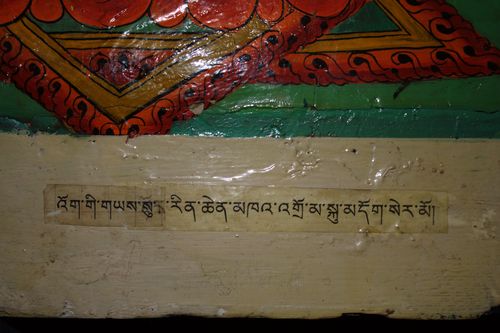 འོག་གི་གཡས་སུར་རིན་ཆེན་མཁའ་འགྲོ་མ་སྐུ་མདོག་སེར་མོ།